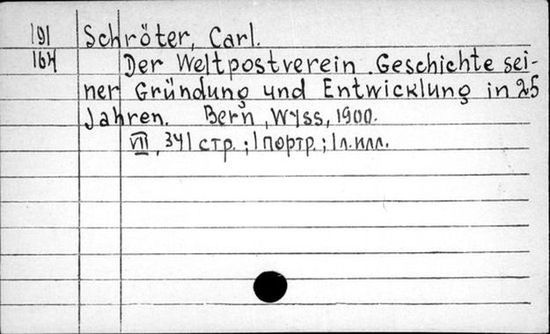 191 Schröter, Carl.
164 Der Weltpostverein. Geschichte sei-
ner Gründung und Entwicklung in 25
Jahren. Bern, Wyss, 1900.
VII, 341 стр.; 1 портр.; 1 л. илл.